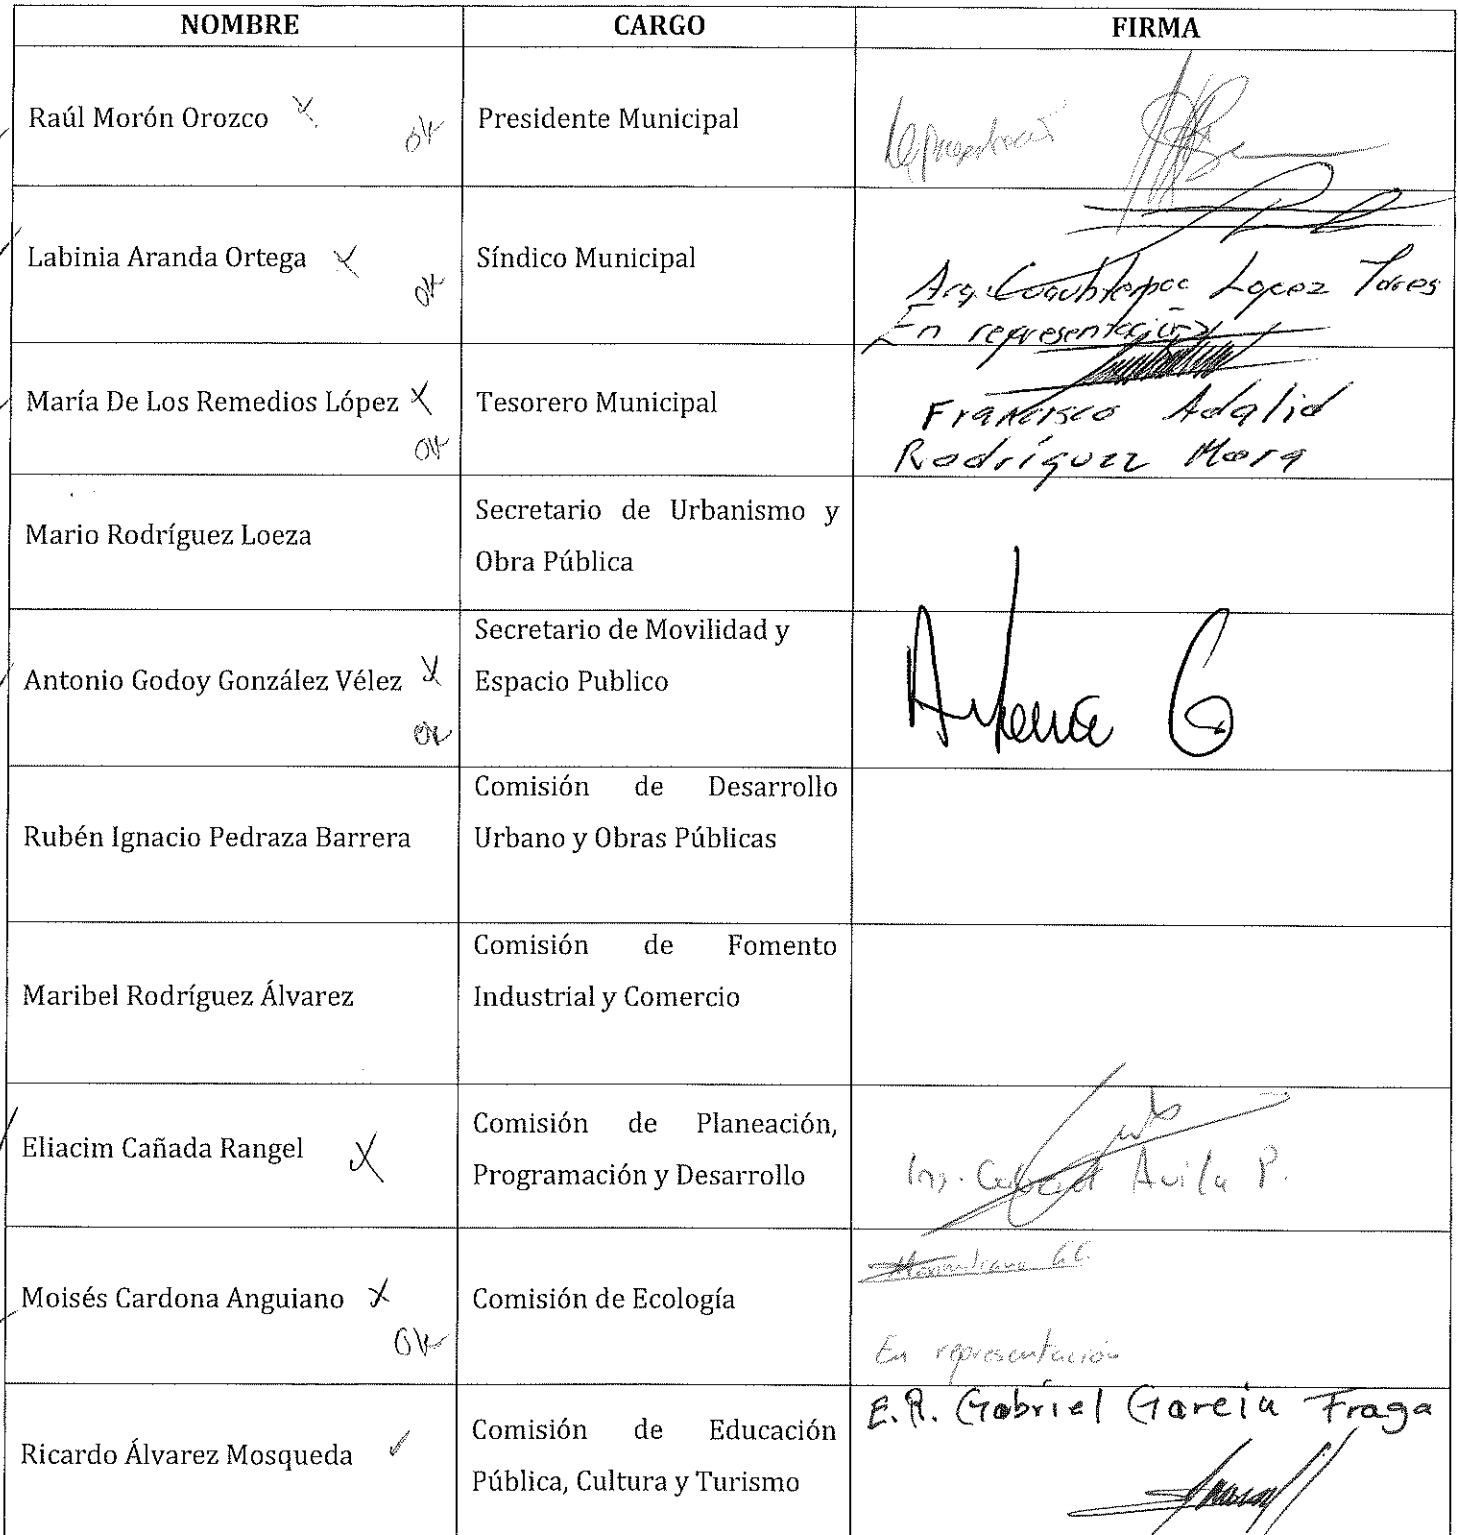 NOMBRE CARGO FIRMA
Raúl Morón Orozco ok Presidente Municipal
Labinia Aranda Ortega ok Síndico Municipal
Arq. Cuauhtemoc Lopez Torres
En representación
María De Los Remedios López ok Tesorero Municipal
Francisco Adalid
Rodríguez Mora
Mario Rodríguez Loeza
Secretario de Urbanismo y
Obra Pública
Antonio Godoy González Vélez ok
Secretario de Movilidad y
Espacio Publico
Rubén Ignacio Pedraza Barrera
Comisión de Desarrollo
Urbano y Obras Públicas
Maribel Rodríguez Álvarez
Comisión de Fomento
Industrial y Comercio
Eliacim Cañada Rangel
Comisión de Planeación,
Programación y Desarrollo
Ing. Avila P.
Moisés Cardona Anguiano ok Comisión de Ecología
En representación
Ricardo Álvarez Mosqueda
Comisión de Educación
Pública, Cultura y Turismo
E.R. Gabriel García Fraga